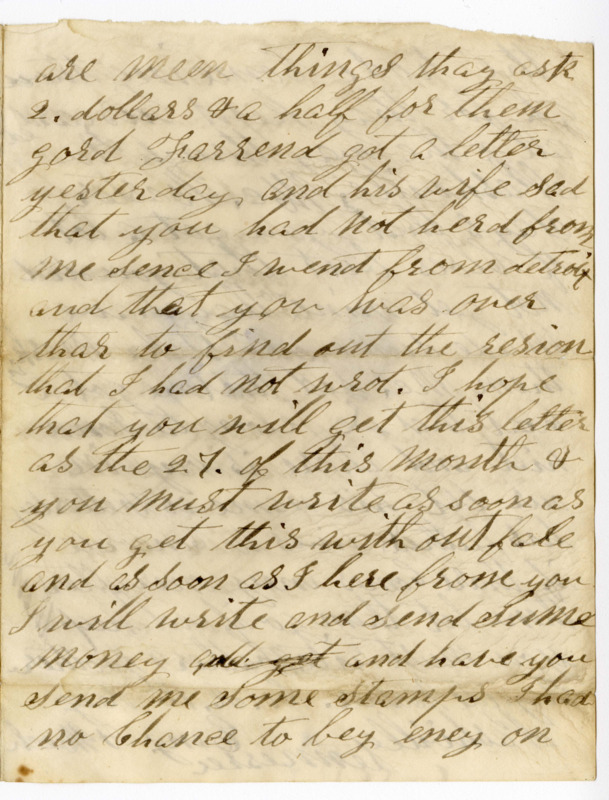 are meen things thay ask
2. dollars & a half for them
gord Farrend got a letter
yesterday, and his wife sad
that you had not herd from
me sence I went from detroit
and that you was over
thar to find out the resion
that I had not wrot. I hope
that you will get this letter
as the 27. of this month &
you must write as soon as
you get this without fale
and as soon as I here frome you
I will write and send sume
money and get and have you
send me some stamps I had
no Chance to bey eney on